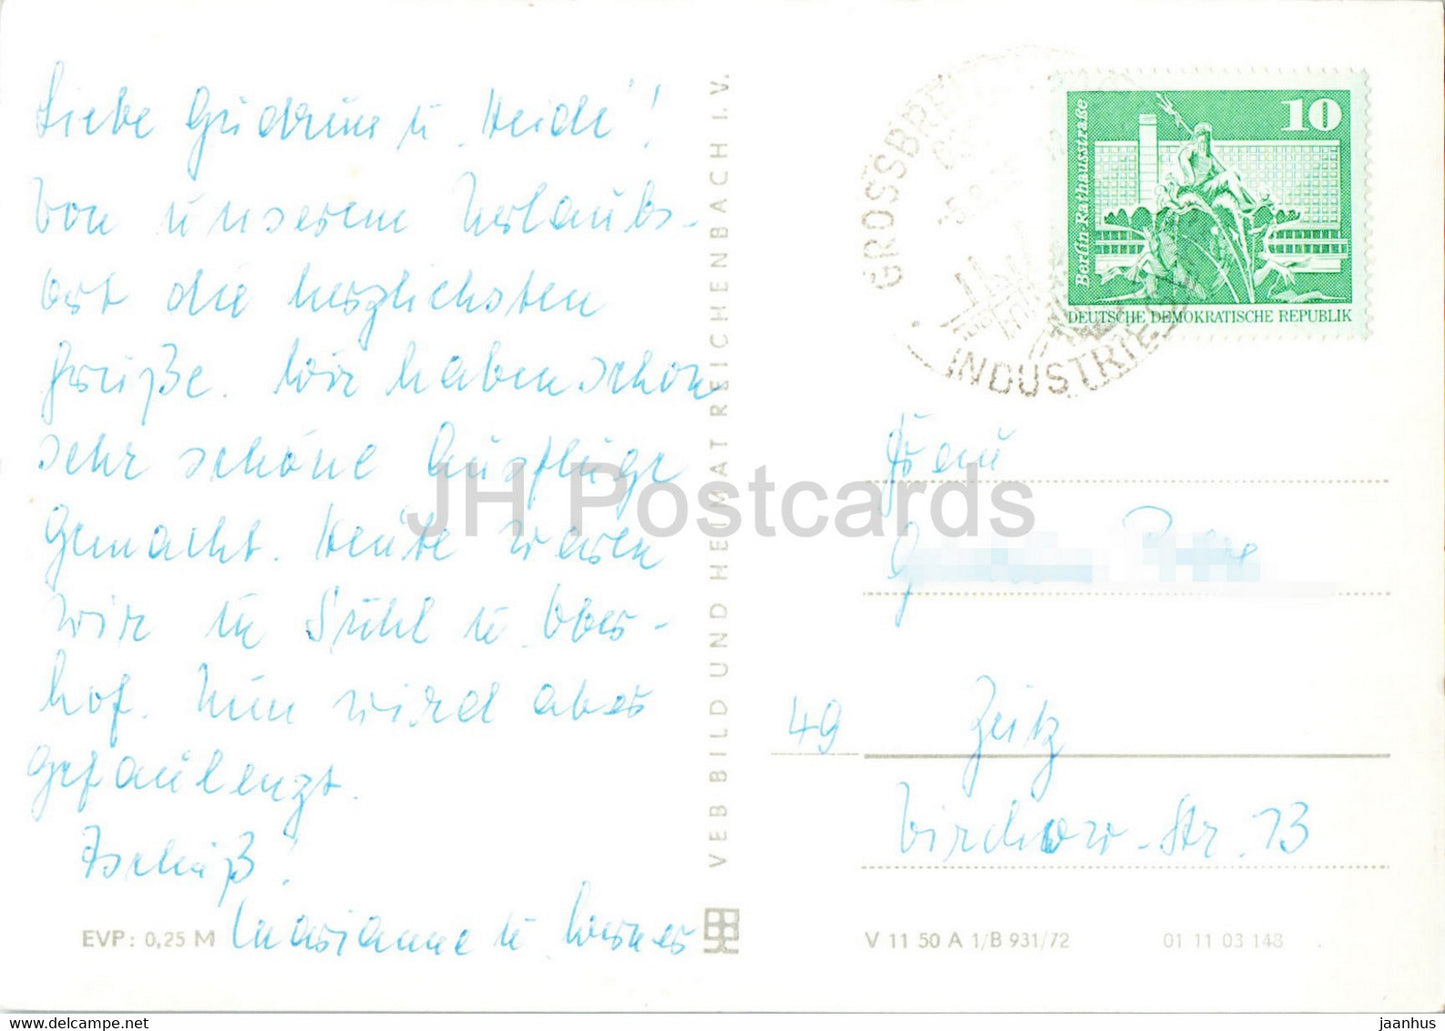 Liebe Gudrun u. Heidi!
Von unserem Urlaubs-
ort die herzlichsten
Grüße. Wir haben schon
sehr schöne Ausflüge
gemacht. Heute waren
wir in Suhl u. Ober-
hof. Nun wird aber
gefaulenzt.
Tschüß!
Marianne u. Werner
EVP: 0,25 M
VEB BILD UND HEIMAT REICHENBACH I. V.
GROSSBRE
INDUSTRIE
10
Berlin-Rathausstraße
DEUTSCHE DEMOKRATISCHE REPUBLIK
Frau
49 Zeitz
Virchow-Str. 13
V 11 50 A 1/B 931/72 01 11 03 148
JH Postcards
delcampe.net
jaanhus